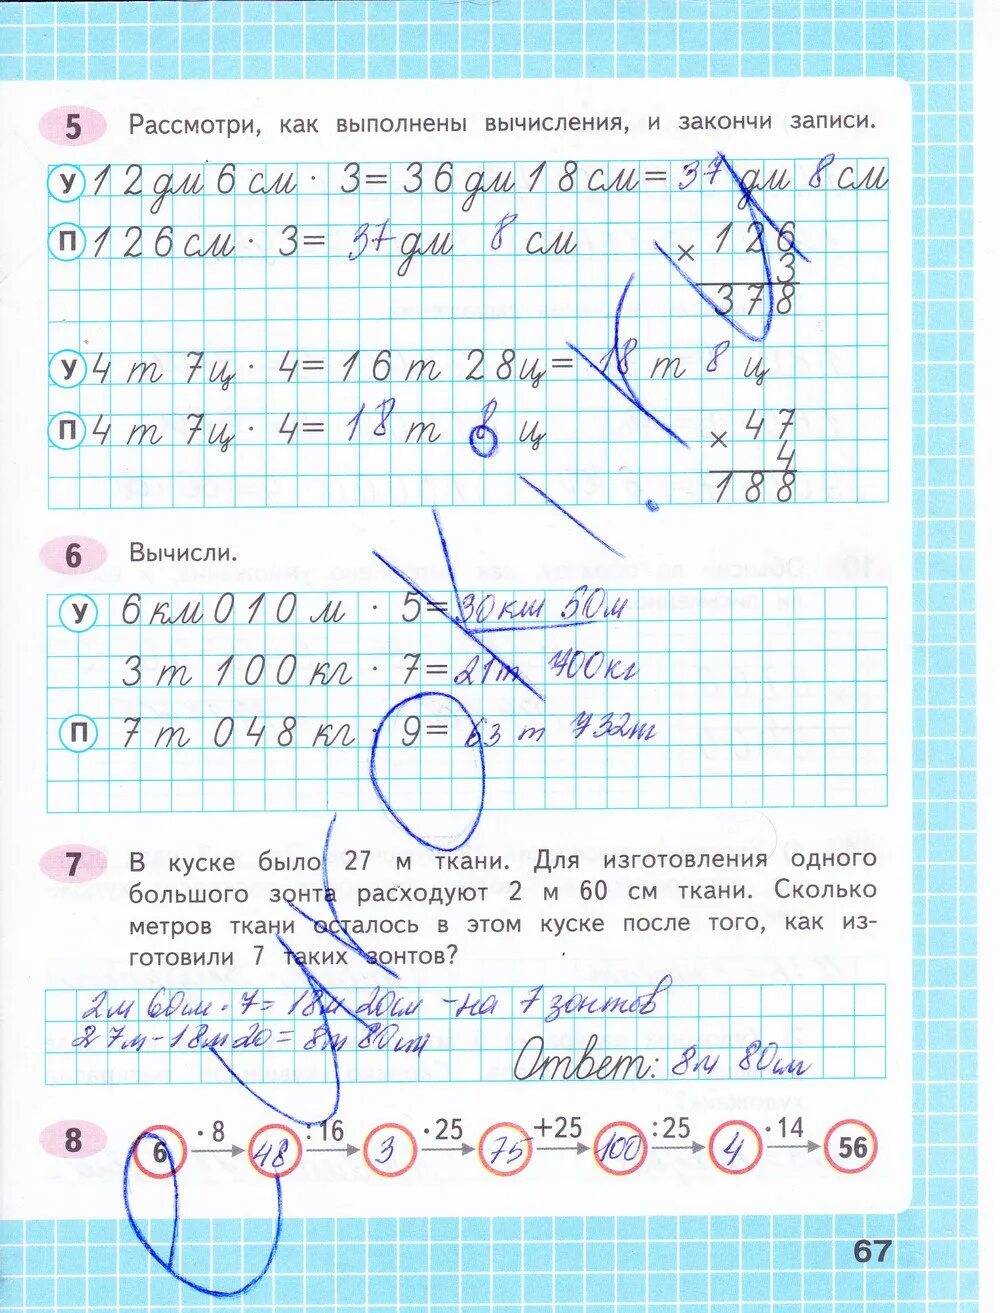 5 Рассмотри, как выполнены вычисления, и закончи записи.
У 12 дм 6 см · 3 = 36 дм 18 см = 37 дм 8 см
П 126 см · 3 = 37 дм 8 см
× 126
3
378
У 4 т 7 ц · 4 = 16 т 28 ц = 18 т 8 ц
П 4 т 7 ц · 4 = 18 т 8 ц
× 47
4
188
6 Вычисли.
У 6 км 010 м · 5 = 30 км 50 м
3 т 100 кг · 7 = 21 т 700 кг
П 7 т 048 кг · 9 = 63 т
7 В куске было 27 м ткани. Для изготовления одного
большого зонта расходуют 2 м 60 см ткани. Сколько
метров ткани осталось в этом куске после того, как из-
готовили 7 таких зонтов?
2м 60см · 7 = 18м 20см - на 7 зонтов
27м - 18м 20 =
Ответ: 8м 80см
8 6 · 8 48 : 16 3 · 25 75 +25 100 : 25 4 · 14 56
67